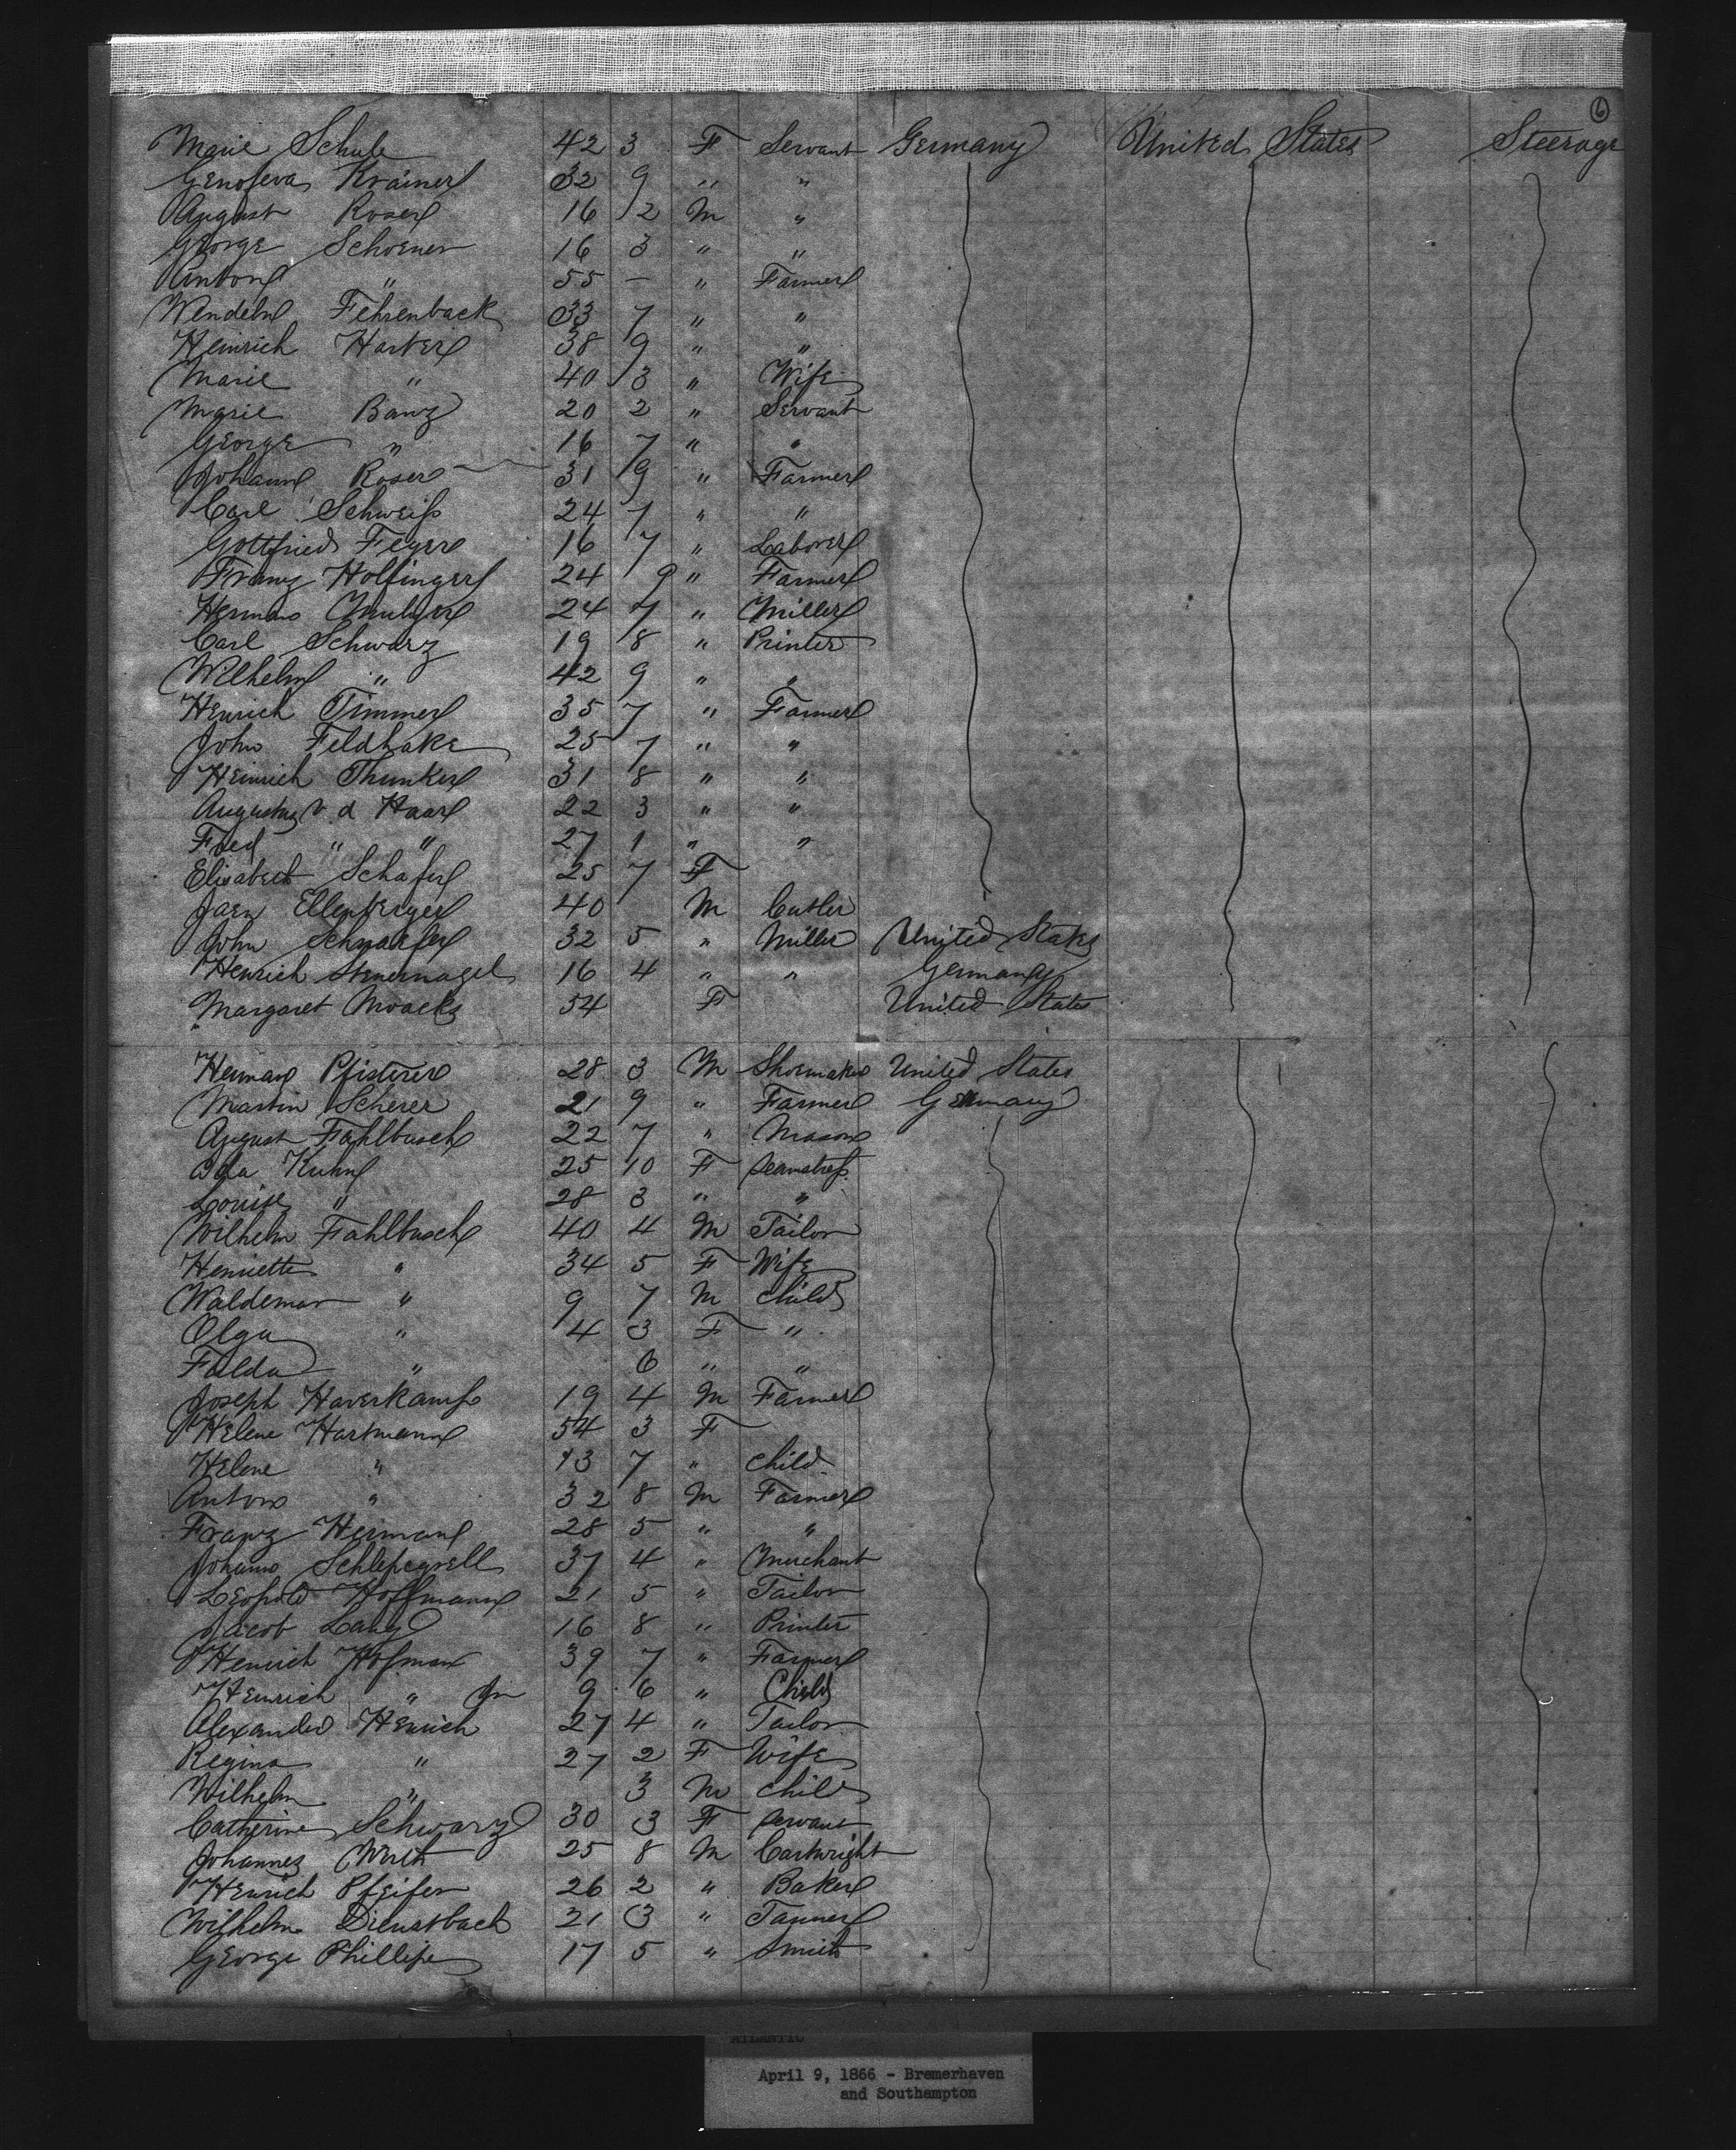 6
Marie Schule 42 3 F Servant Germany United States Steerage
Genofeva Kramer 32 9 " "
August Roser 16 2 M "
George Schoener 16 3 " "
Anton " 55 — " Farmer
Wendelin Fehrenback 33 7 " "
Heinrich Harter 38 9 " "
Marie " 40 3 " Wife
Marie Banz 20 2 " Servant
George " 16 7 " "
Johann Roser 31 9 " Farmer
Carl Schweiss 24 7 " "
Gottfried Feyer 16 7 " Laborer
Franz Holfinger 24 9 " Farmer
Herman 24 7 " Miller
Carl Schwarz 19 8 " Printer
Wilhelm " 42 9 " "
Henrich Timmer 35 7 " Farmer
John Feldhake 25 7 " "
Heinrich Thunker 31 8 " "
Augustus v. d Haar 22 3 " "
Fred " " 27 1 " "
Elisabeth Schafer 25 7 F
Ellenberger 40 M Cutler
John Schnaufer 32 5 " Miller United States
Henrich Steuernagel 16 4 " " Germany
Margaret Noacks 54 F United States
Herman Pfisterer 28 3 M Shoemaker United States
Martin Scherer 21 9 " Farmer Germany
August Fahlbusch 22 7 " Mason
Ida Kuhn 25 10 F Seamstress
Louise " 28 3 " "
Wilhelm Fahlbusch 40 4 M Tailor
Henriette " 34 5 F Wife
Waldemar " 9 7 M Child
Olga " 4 3 F "
Falda " 6 " "
Joseph Haverkamp 19 4 M Farmer
Helene Hartmann 54 3 F
Helene " 13 7 " Child
Anton " 32 8 M Farmer
Franz Herman 28 5 " "
Johann Schlepegrell 37 4 " Merchant
Leopold Hoffmann 21 5 " Tailor
Jacob Lang 16 8 " Printer
Henrich Hofman 39 7 " Farmer
Heinrich " Jr 9 6 " Child
Alexander Henrich 27 4 " Tailor
Regina " 27 2 F Wife
Wilhelm " 3 M Child
Catherine Schwarz 30 3 F Servant
Johannes Wirth 25 8 M Cartwright
Henrich Pfeifer 26 2 " Baker
Wilhelm Dienstbach 21 3 " Tanner
George Phillips 17 5 " Smith
ATLANTIC
April 9, 1866 - Bremerhaven
and Southampton